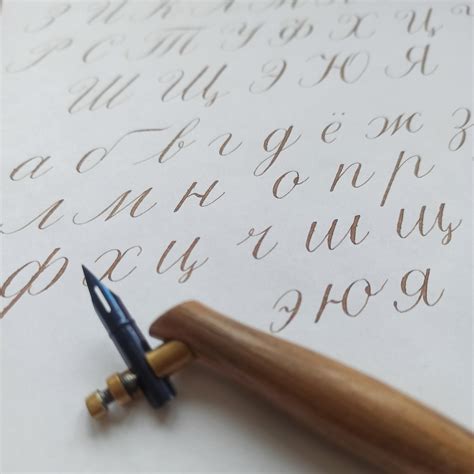 Р С Т У Ф Х Ц
Ш Щ Э Ю Я
а б в г д ё ж з
л м н о п р
ф х ц ч ш щ
э ю я